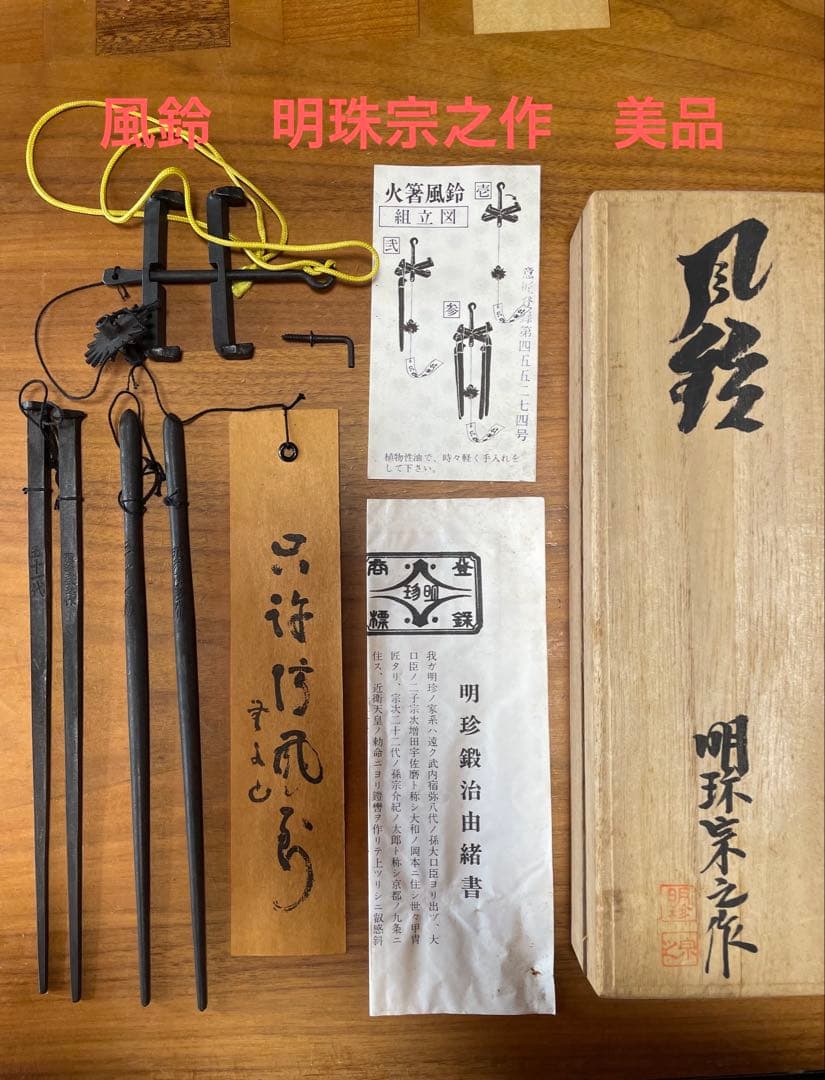 風鈴 明珠宗之作 美品
火箸風鈴
組立図
壱
弐
参
意匠登録第四五五二七四号
植物性油で、時々軽く手入れを
して下さい。
登録
商標
明珍
明珍鍛治由緒書
我ガ明珍ノ家系ハ遠ク武内宿弥八代ノ孫大口臣ヨリ出ヅ、大
口臣ノ二子宗次増田宇佐磨ト称シ大和ノ岡本ニ住シ世々甲冑
匠タリ、宗次二十二代ノ孫宗介紀ノ太郎ト称シ京都ノ九条ニ
住ス、近衛天皇ノ勅命ニヨリ鎧轡ヲ作リテ上ツリシニ叡感斜
風鈴
明珎宗之作
明珍
五十一代